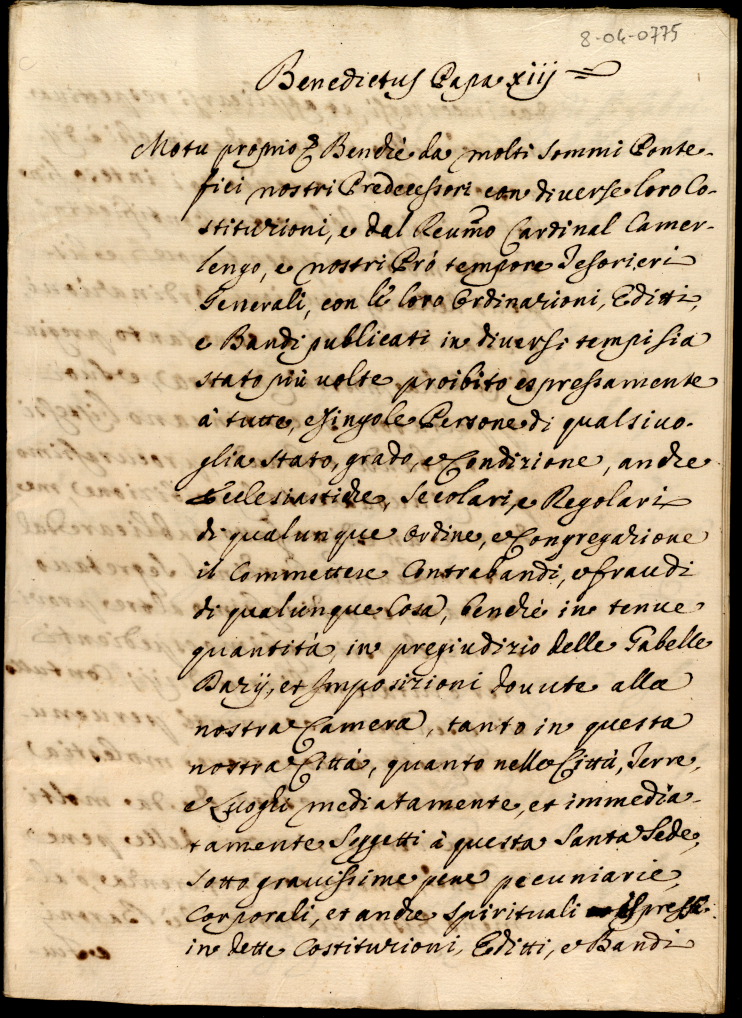 8-04-0775
Benedictus Papa xiij
Motu proprio &c. Benche da molti Sommi Ponte-
fici nostri Predecessori con diverse loro Co-
stituzioni, e dal Reumo Cardinal Camer-
lengo, e nostri Prò tempore Tesorieri
Generali, con le loro Ordinazioni, Editti,
e Bandi publicati in diversi tempi sia
stato più volte proibito espressamente
à tutte, e singole Persone di qualsivo-
glia stato, grado, e Condizione, anche
Ecclesiastiche, Secolari, e Regolari
di qualunque Ordine, e Congregazione
il Commettere Contrabandi, e fraudi
di qualunque Cosa, benchè in tenue
quantità, in pregiudizio delle Gabelle
Dazij, et Imposizioni dovute alla
nostra Camera, tanto in questa
nostra Città, quanto nelle Città, Terre,
e Luoghi mediatamente, et immedia-
tamente Soggetti à questa Santa Sede,
sotto gravissime pene pecuniarie,
Corporali, et anche spirituali espresse
in dette Costituzioni, Editti, e Bandi